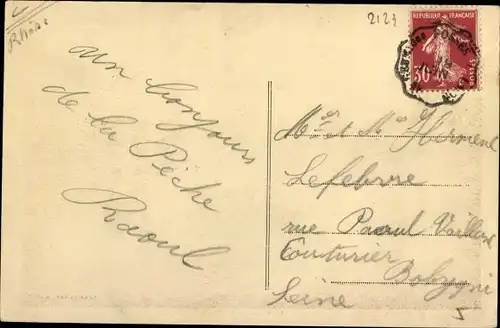 Rhône
2123
REPUBLIQUE FRANÇAISE
POSTES
30
un bonjour
de la Pêche
Raoul
Mr et Me Herment
Lefebvre
rue Paoul Vaillant
Couturier
Bobygni
Seine